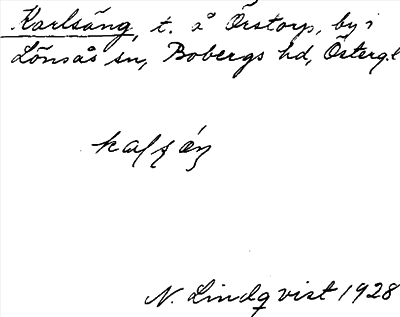 Karlsäng, t. å Örstorp, by i
Lönsås sn, Bobergs hd, Österg.l
N. Lindqvist 1928